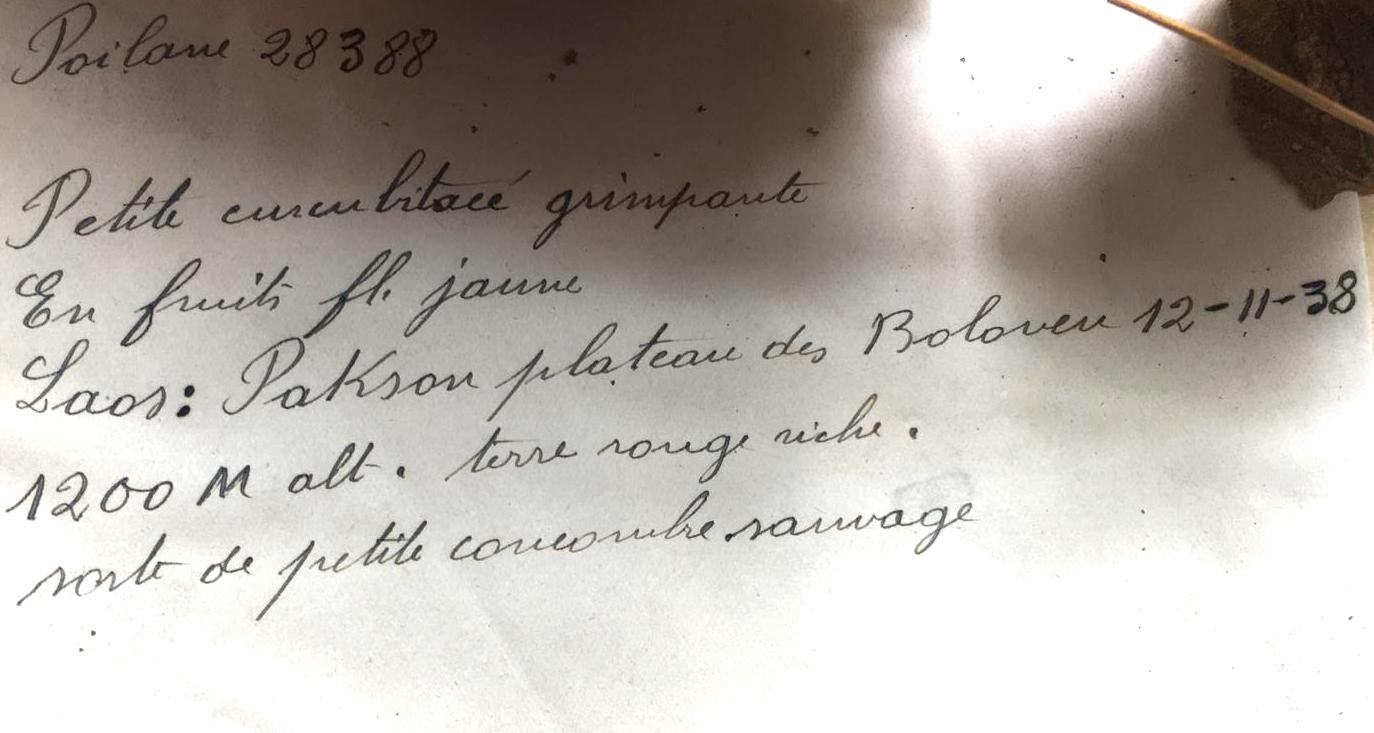 Poilane 28388
Petite curcubitacé grimpante
En fruits fl. jaune
Laos: Pakson plateau des Boloven 12-11-38
1200 M alt. terre rouge riche.
sorte de petite concombre sauvage